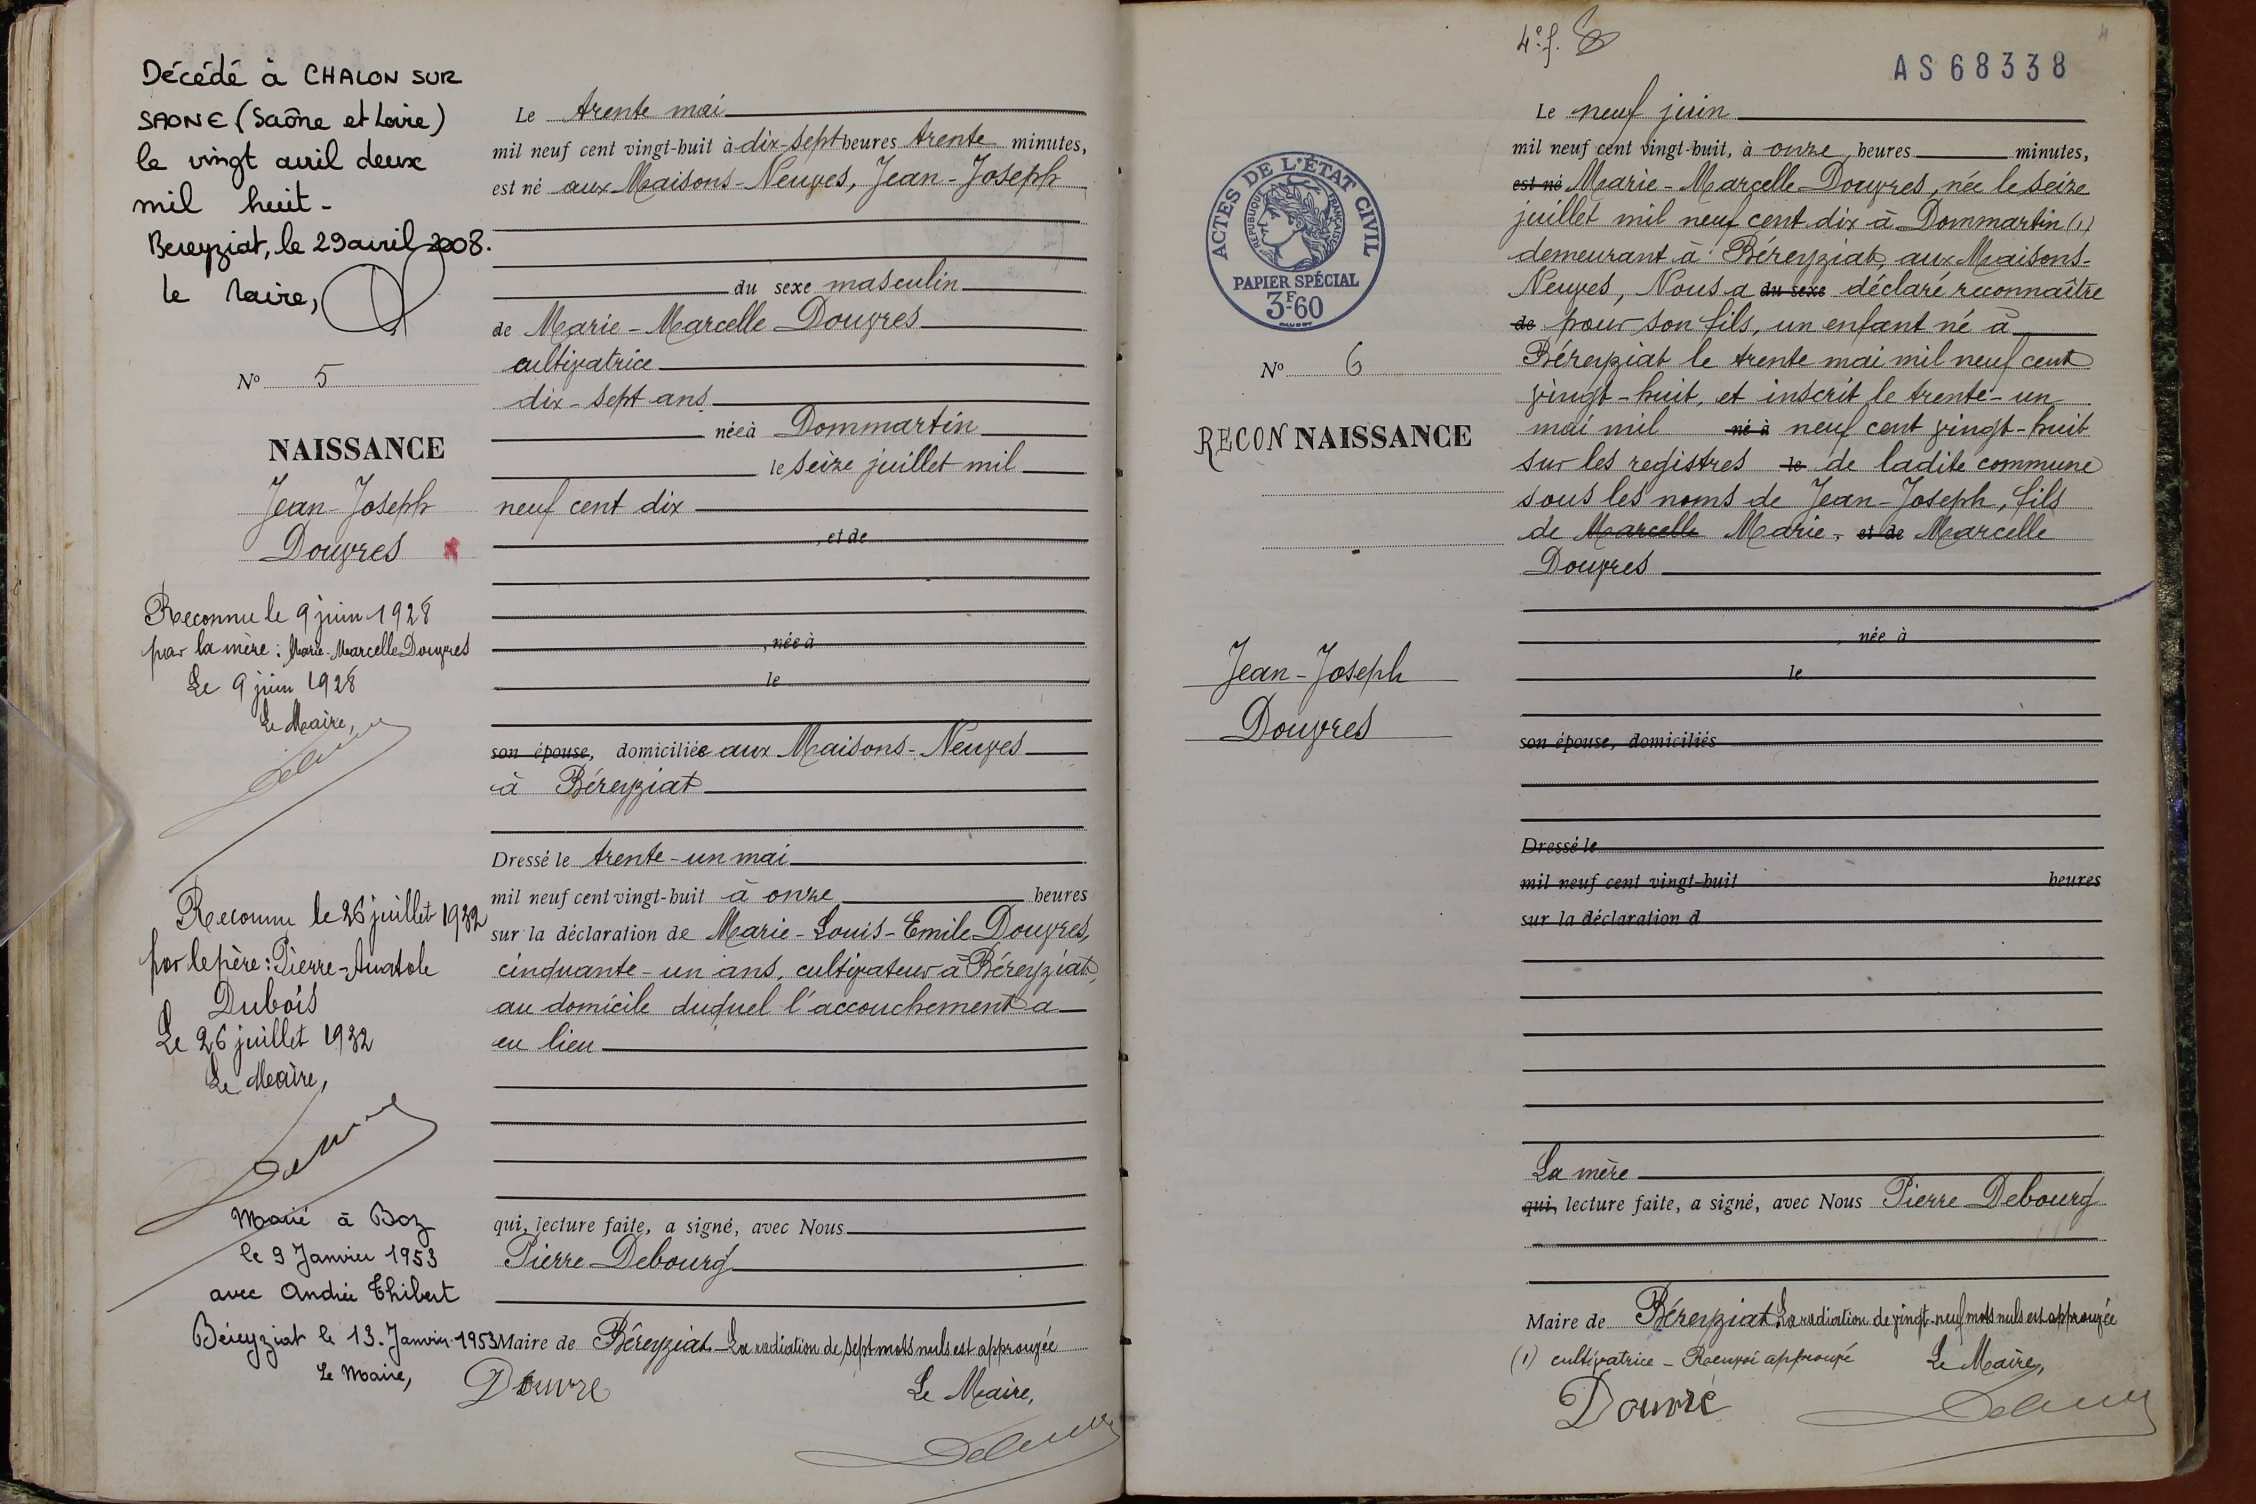 Décédé à CHALON SUR
SAONE (Saône et Loire)
le vingt avril deux
mil huit -
Bereyziat, le 29 avril 2008.
le Maire,
N° 5
NAISSANCE
Jean-Joseph
Douvres
Reconnu le 9 juin 1928
par la mère : Marie-Marcelle Douvres
Le 9 juin 1928
Le Maire,
Reconnu le 26 juillet 1932
par le père : Pierre-Anatole
Dubois
Le 26 juillet 1932
Le Maire,
Marié à Boz
le 9 Janvier 1953
avec Andrée Thibert
Béreyziat le 13 Janvier 1953
Le Maire,
Le trente mai
mil neuf cent vingt-huit à dix-sept heures trente minutes,
est né aux Maisons-Neuves, Jean-Joseph
du sexe masculin
de Marie-Marcelle Douvres
cultivatrice
dix-sept ans
née à Dommartin
le seize juillet mil
neuf cent dix
, et de
, née à
le
son épouse, domiciliée aux Maisons-Neuves
à Béreyziat
Dressé le trente-un mai
mil neuf cent vingt-huit à onze heures
sur la déclaration de Marie-Louis-Emile Douvres,
cinquante-un ans, cultivateur à Béreyziat,
au domicile duquel l'accouchement a
eu lieu
qui, lecture faite, a signé, avec Nous
Pierre Debourg
Maire de Béreyziat. La radiation de sept mots nuls est approuvée
Douvre
Le Maire,
4e f.
4
AS68338
ACTES DE L'ÉTAT CIVIL
RÉPUBLIQUE FRANÇAISE
PAPIER SPÉCIAL
3F60
N° 6
RECONNAISSANCE
Jean-Joseph
Douvres
Le neuf juin
mil neuf cent vingt-huit, à onze heures minutes,
est né Marie-Marcelle Douvres, née le seize
juillet mil neuf cent dix à Dommartin (1)
demeurant à Béreyziat, aux Maisons-
Neuves, Nous a du sexe déclaré reconnaître
de pour son fils, un enfant né à
Béreyziat le trente mai mil neuf cent
vingt-huit, et inscrit le trente-un
mai mil né à neuf cent vingt-huit
sur les registres le de ladite commune
sous les noms de Jean-Joseph, fils
de Marcelle Marie, et de Marcelle
Douvres
, née à
le
son épouse, domiciliés
Dressé le
mil neuf cent vingt-huit heures
sur la déclaration d
La mère
qui, lecture faite, a signé, avec Nous Pierre Debourg
Maire de Béreyziat. La radiation de vingt-neuf mots nuls est approuvée
(1) cultivatrice - Renvoi approuvé Le Maire,
Douvre